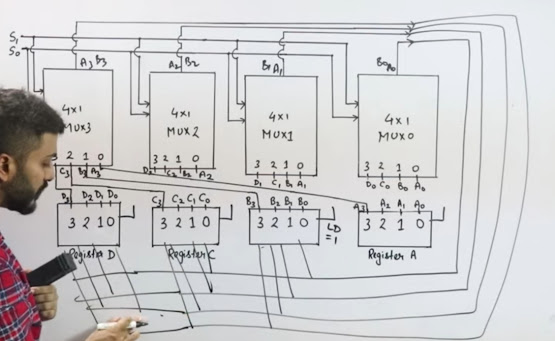 S₁
S₀
A₃ B₃
A₂ B₂
B₁ A₁
B₀ A₀
4x1
MUX3
4x1
MUX2
4x1
MUX1
4x1
MUX0
2 1 0
3 2 1 0
3 2 1 0
3 2 1 0
C₃ B₃ A₃
D₂ C₂ B₂ A₂
D₁ C₁ B₁ A₁
D₀ C₀ B₀ A₀
D₃ D₂ D₁ D₀
C₃ C₂ C₁ C₀
B₃ B₂ B₁ B₀
A₃ A₂ A₁ A₀
3 2 1 0
3 2 1 0
3 2 1 0
3 2 1 0
LD
=1
Register D
Register C
Register A